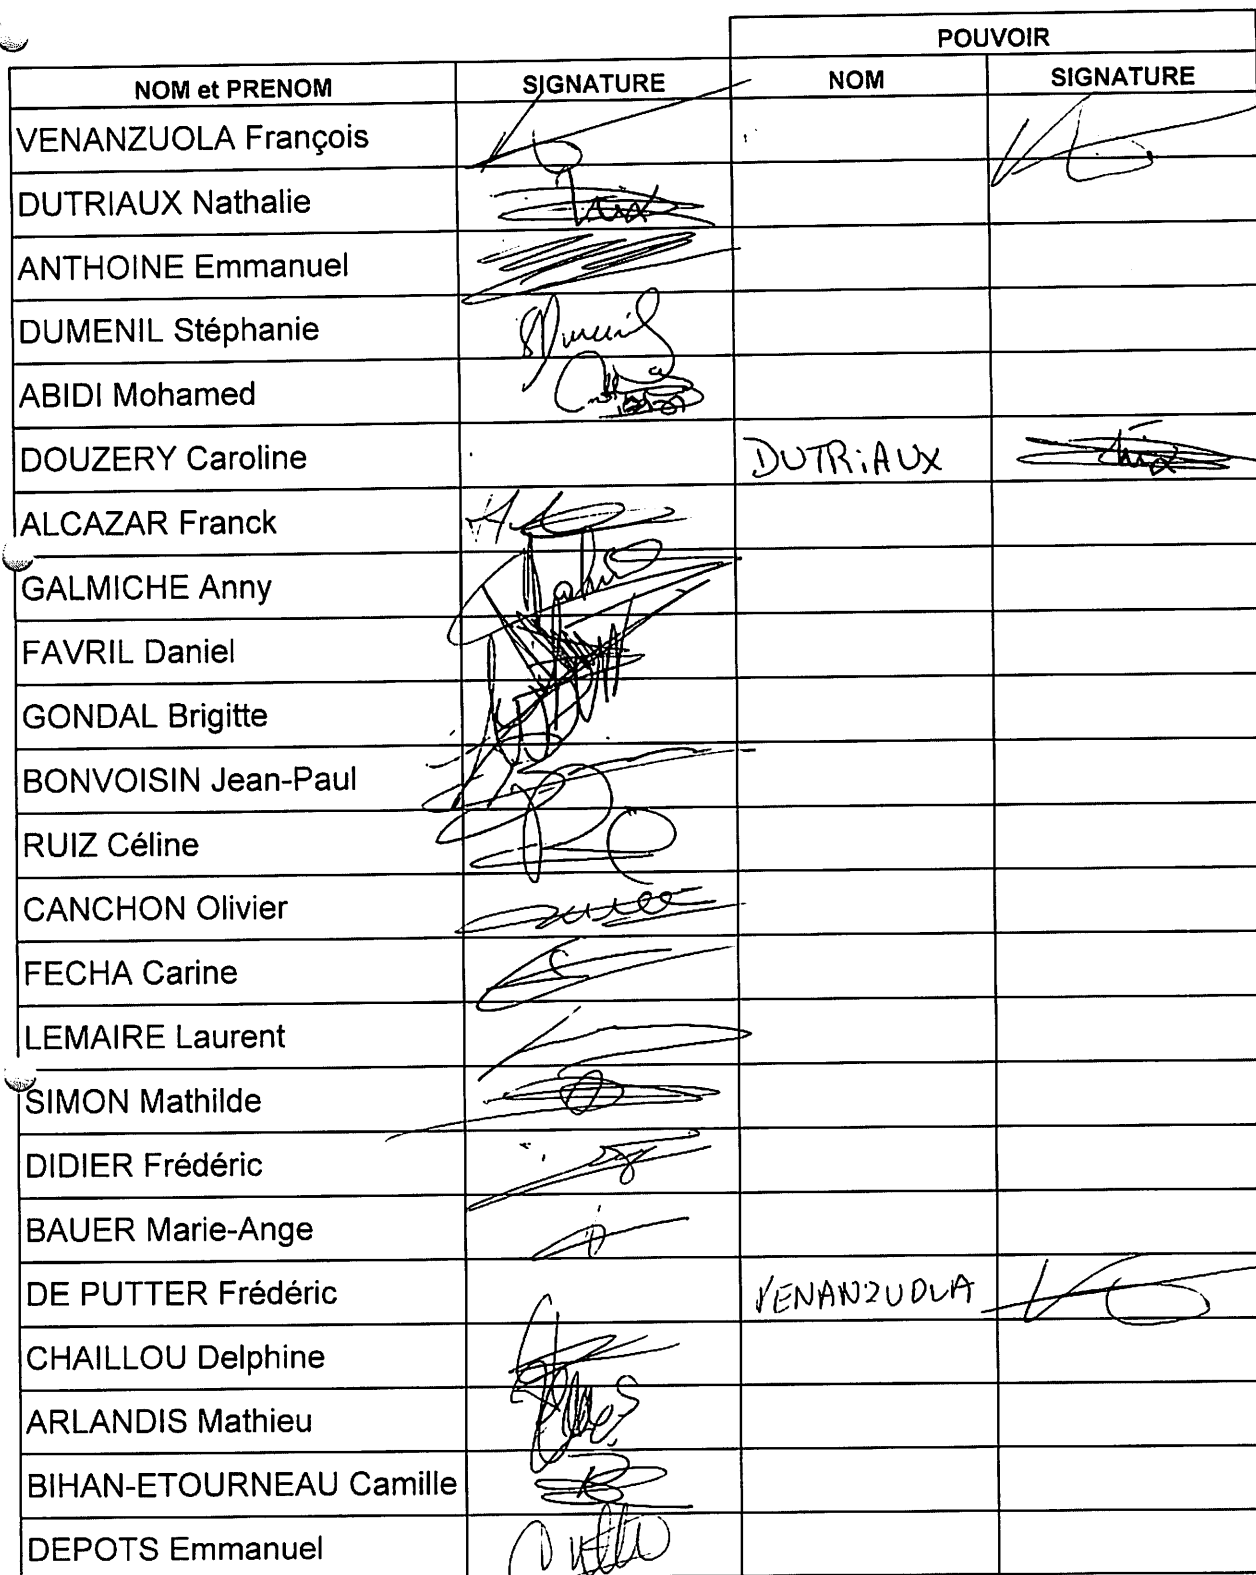 POUVOIR
NOM et PRENOM SIGNATURE NOM SIGNATURE
VENANZUOLA François
DUTRIAUX Nathalie
ANTHOINE Emmanuel
DUMENIL Stéphanie
ABIDI Mohamed
DOUZERY Caroline DUTRiAUX
ALCAZAR Franck
GALMICHE Anny
FAVRIL Daniel
GONDAL Brigitte
BONVOISIN Jean-Paul
RUIZ Céline
CANCHON Olivier
FECHA Carine
LEMAIRE Laurent
SIMON Mathilde
DIDIER Frédéric
BAUER Marie-Ange
DE PUTTER Frédéric VENANZUOLA
CHAILLOU Delphine
ARLANDIS Mathieu
BIHAN-ETOURNEAU Camille
DEPOTS Emmanuel